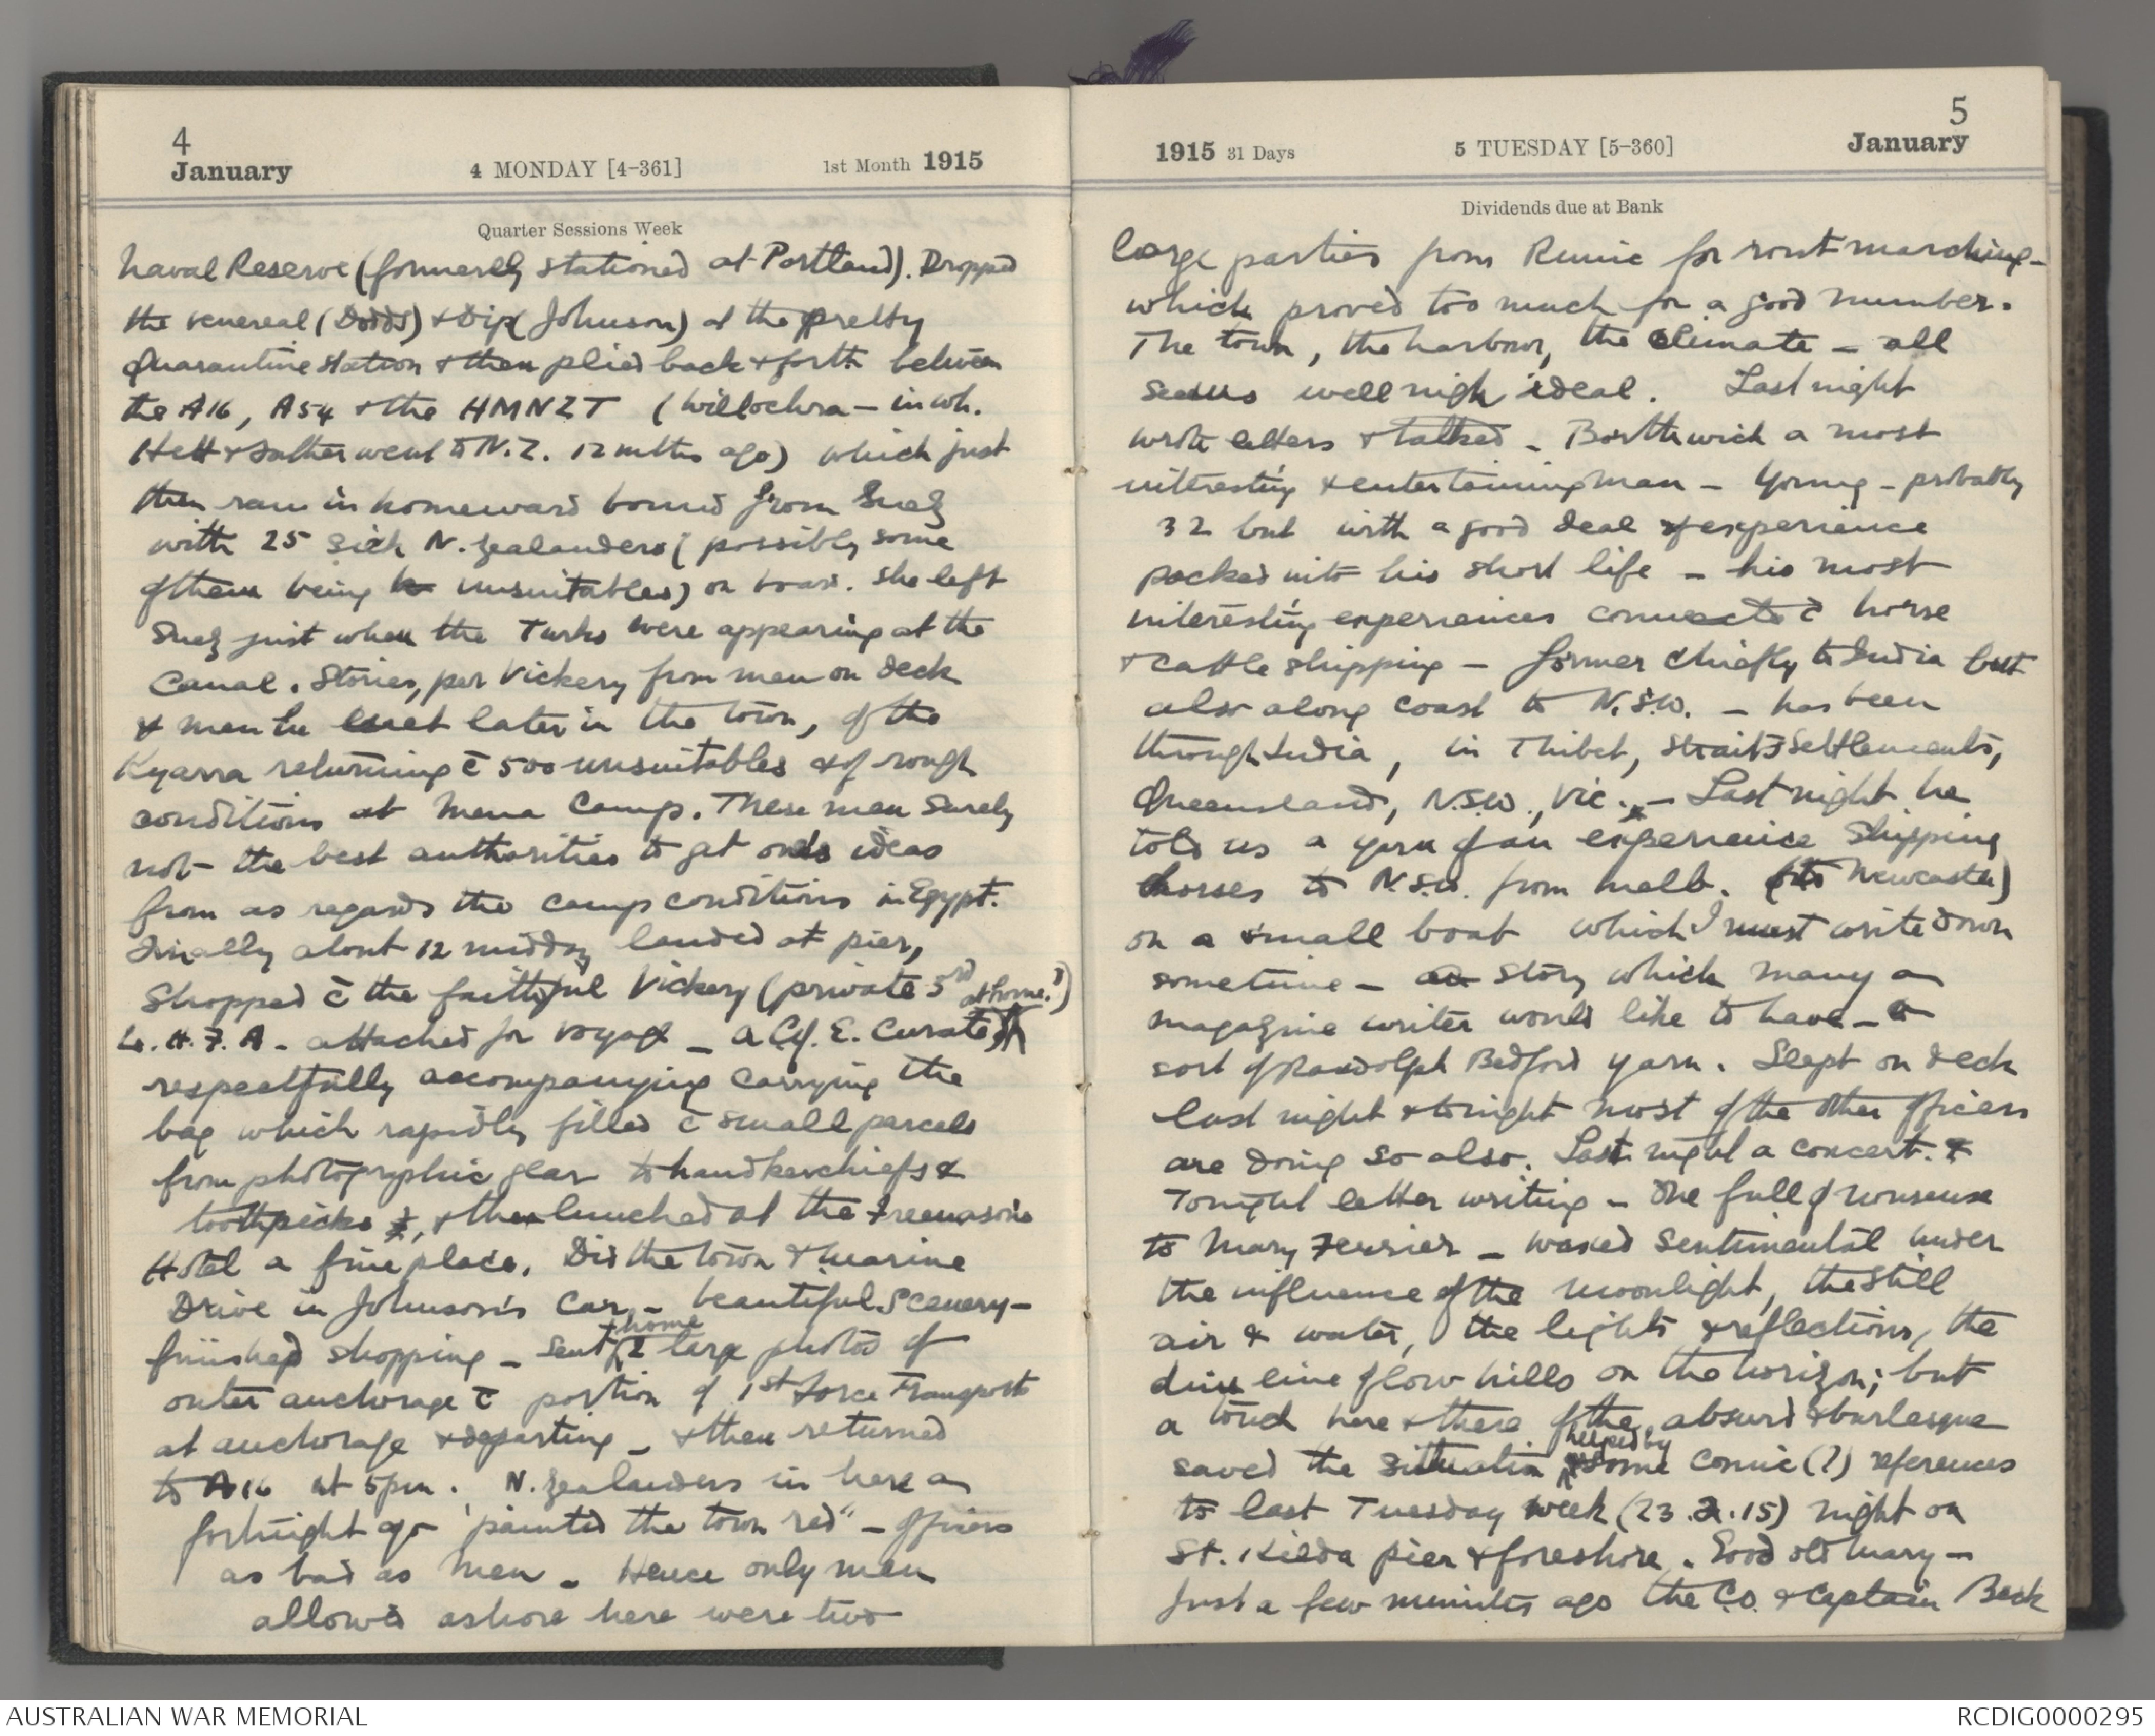 4
January
4 MONDAY [4-361]
1st Month 1915
Quarter Sessions Week
Naval Reserve (formerly stationed at Portland). Dropped
the venereal (Dodds) & Dip (Johnson) at the pretty
Quarantine Station & then plied back & forth between
the A16, A54 & the HMNZT (Willochra – in wh.
Hett & Father went to N.Z. 12 mths ago) which just
then ran in homeward bound from Suez
with 25 sick N. Zealanders (possibly some
of them being unsuitables) on board. She left
Suez just when the Turks were appearing at the
Canal. Stories, per Vickery from men on deck
& men he met later in the town, of the
Kyarra returning c̄ 500 unsuitables & of rough
conditions at Mena Camp. These men surely
not the best authorities to get one's ideas
from as regards the camp conditions in Egypt.
Finally about 12 midday landed at pier,
Shopped c̄ the faithful Vickery (private 3rd
at home?)
L.H.F.A. – attached for voyage – a C. of E. Curate
respectfully accompanying carrying the
bag which rapidly filled c̄ small parcels
from photographic gear to handkerchiefs &
toothpicks, & then lunched at the Freemasons
Hotel a fine place. Did the town & Marine
Drive in Johnson's Car – beautiful Scenery –
finished shopping – sent home 2 large photos of
outer anchorage c̄ portion of 1st Force Transports
at anchorage & departing – & then returned
to A16 at 5pm. N. Zealanders in here a
fortnight ago "painted the town red" – officers
as bad as men – Hence only men
allowed ashore here were two
5
1915 31 Days
5 TUESDAY [5-360]
January
Dividends due at Bank
large parties from Runic for rout marching –
which proved too much for a good number.
The town, the harbour, the climate – all
seems well nigh ideal. Last night
wrote letters & talked – Borthwick a most
interesting & entertaining man – Young – probably
32 but with a good deal of experience
packed into his short life – his most
interesting experiences connected c̄ horse
& cattle shipping – former chiefly to India but
also along coast to N.S.W. – has been
through India, in Thibet, Straits Settlements,
Queensland, N.S.W., Vic. – Last night he
told us a yarn of an experience shipping
horses to N.S.W. from Melb. (to Newcastle)
on a small boat which I must write down
sometime – a story which many a
magazine writer would like to have – a
sort of Randolph Bedford yarn. Slept on deck
last night & tonight most of the other officers
are doing so also. Last night a concert.
Tonight letter writing – One full of nonsense
to Mary Ferrier – waxed sentimental under
the influence of the moonlight, the still
air & water, the lights & reflections, the
dim line of low hills on the horizon; but
a touch here & there of the absurd & burlesque
saved the situation helped by some comic (?) references
to last Tuesday week (23.2.15) night on
St. Kilda pier & foreshore. Good old Mary –
Just a few minutes ago the C.O. & Captain Beck
AUSTRALIAN WAR MEMORIAL
RCDIG0000295